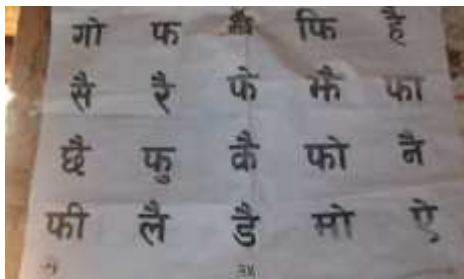 गो फ फि है
सै रै फे झै फा
छै फु कै फो नै
फी लै डै मो ऐ